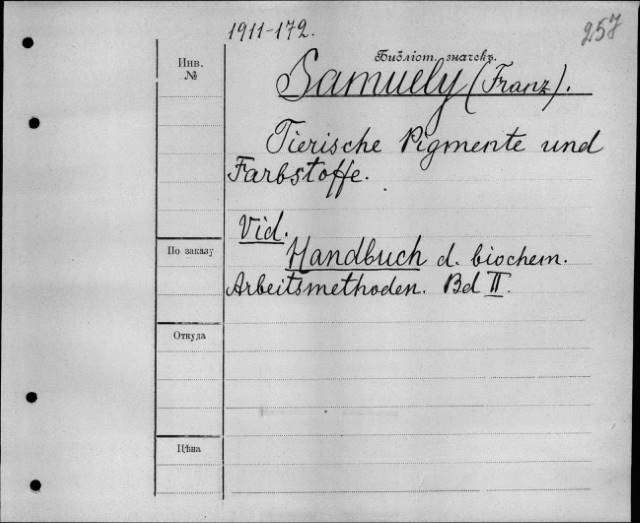 1911-172.
257
Инв.
№
Библіот. значекъ.
Samuely (Franz).
Tierische Pigmente und
Farbstoffe.
Vid.
Handbuch d. biochem.
По заказу
Arbeitsmethoden. Bd II.
Откуда
Цѣна